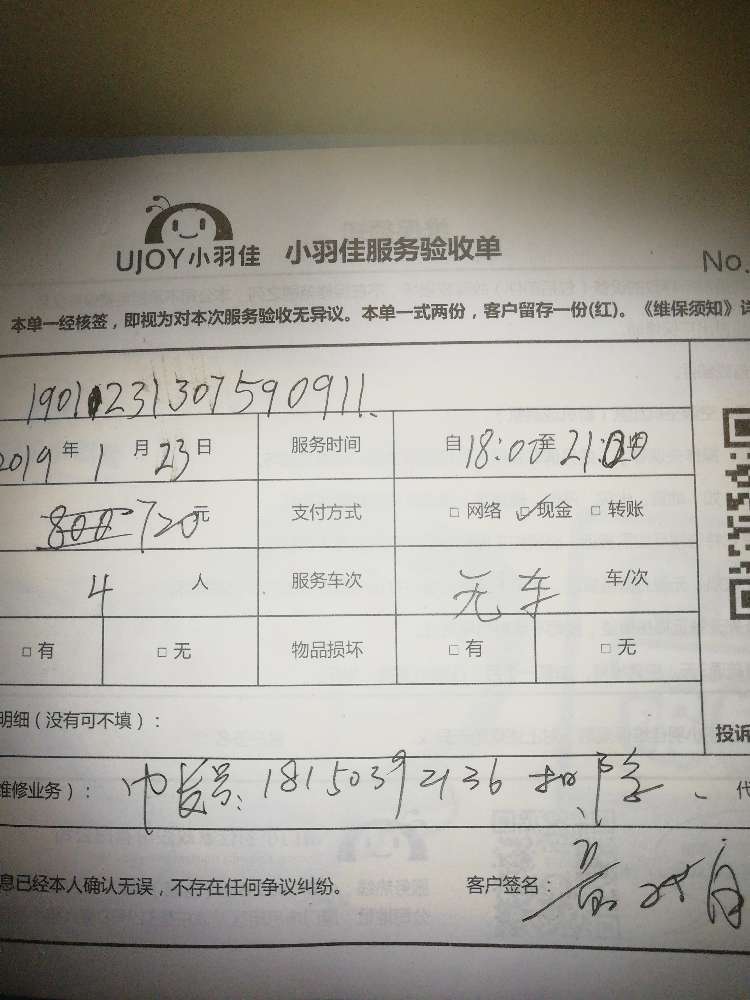 UJOY小羽佳 小羽佳服务验收单
No.
本单一经核签，即视为对本次服务验收无异议。本单一式两份，客户留存一份(红)。《维保须知》详
190123130759091 1.
2019 年 1 月 23 日 服务时间 自 18:00 至 21:00
800 720 元 支付方式 □ 网络 ☑ 现金 □ 转账
4 人 服务车次 无车 车/次
□ 有 □ 无 物品损坏 □ 有 □ 无
明细（没有可不填）：
投诉
维修业务）： 18150392136
代
息已经本人确认无误，不存在任何争议纠纷。 客户签名：